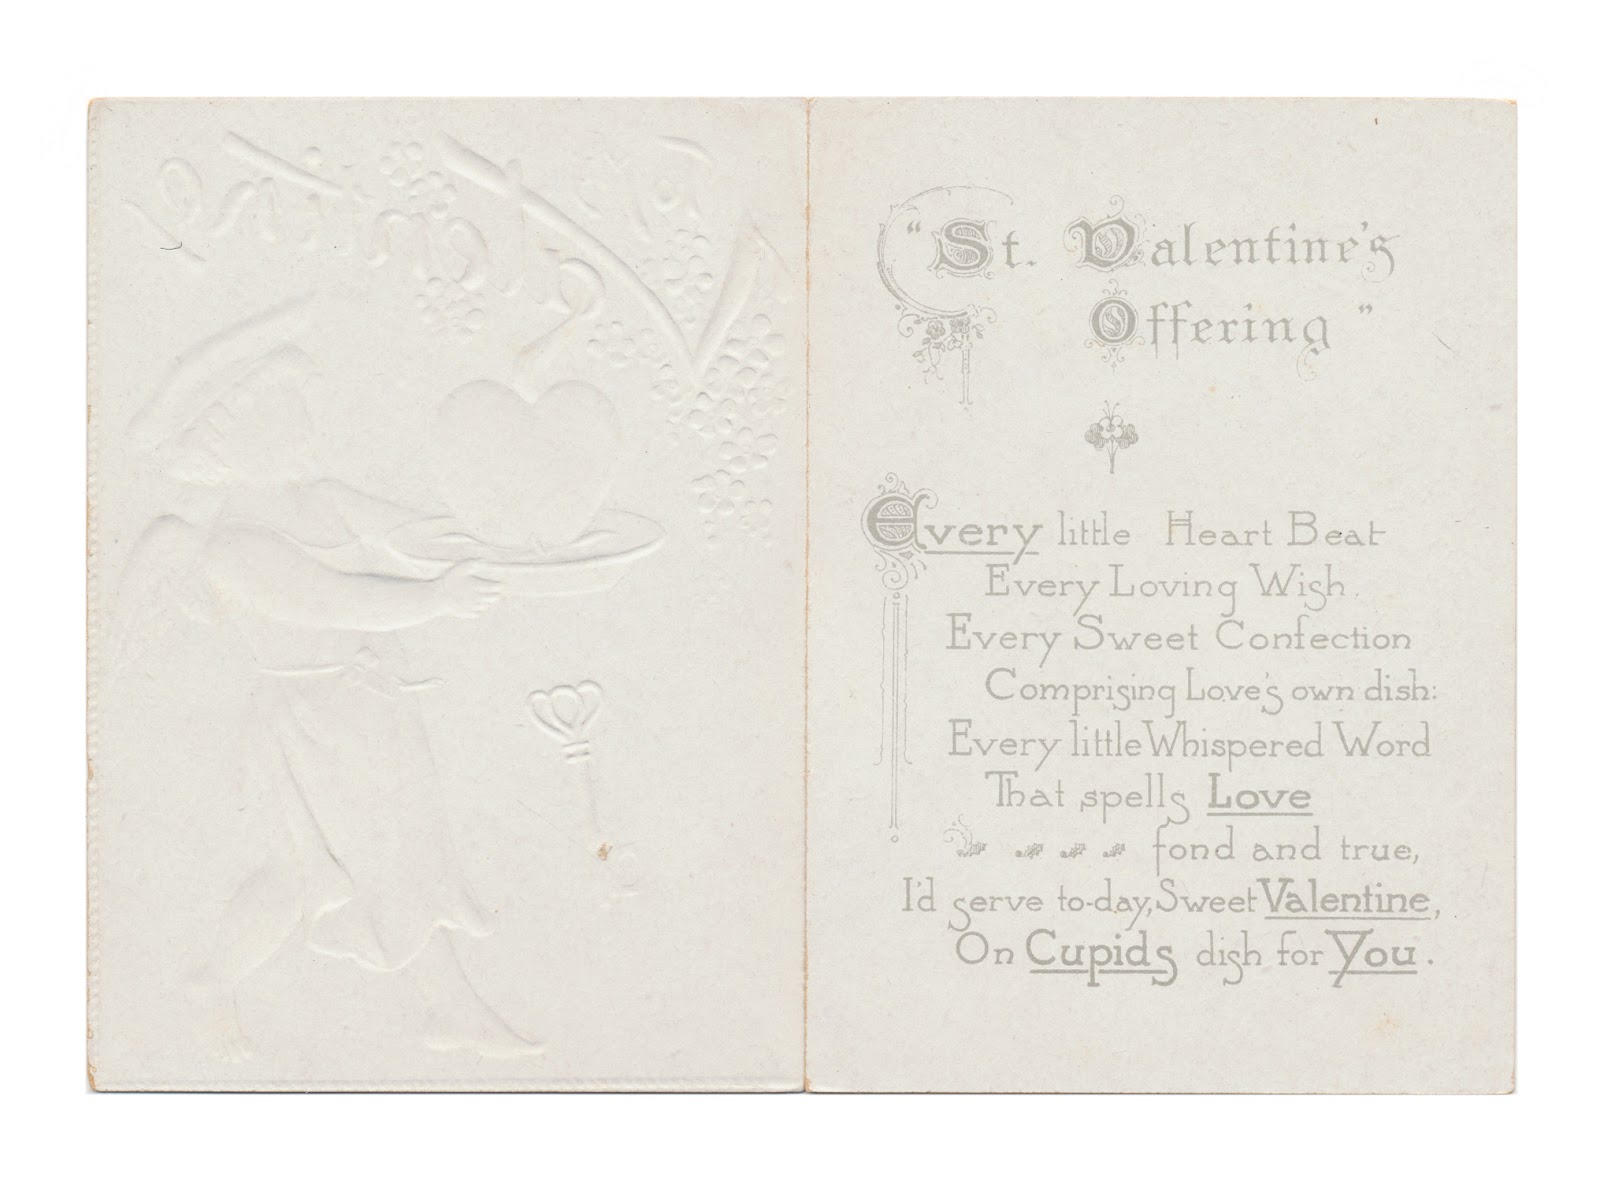 To My
Valentine
"St. Valentine's
Offering"
Every little Heart Beat
Every Loving Wish.
Every Sweet Confection
Comprising Love's own dish:
Every little Whispered Word
That spells Love
fond and true,
I'd serve to-day, Sweet Valentine,
On Cupids dish for You.